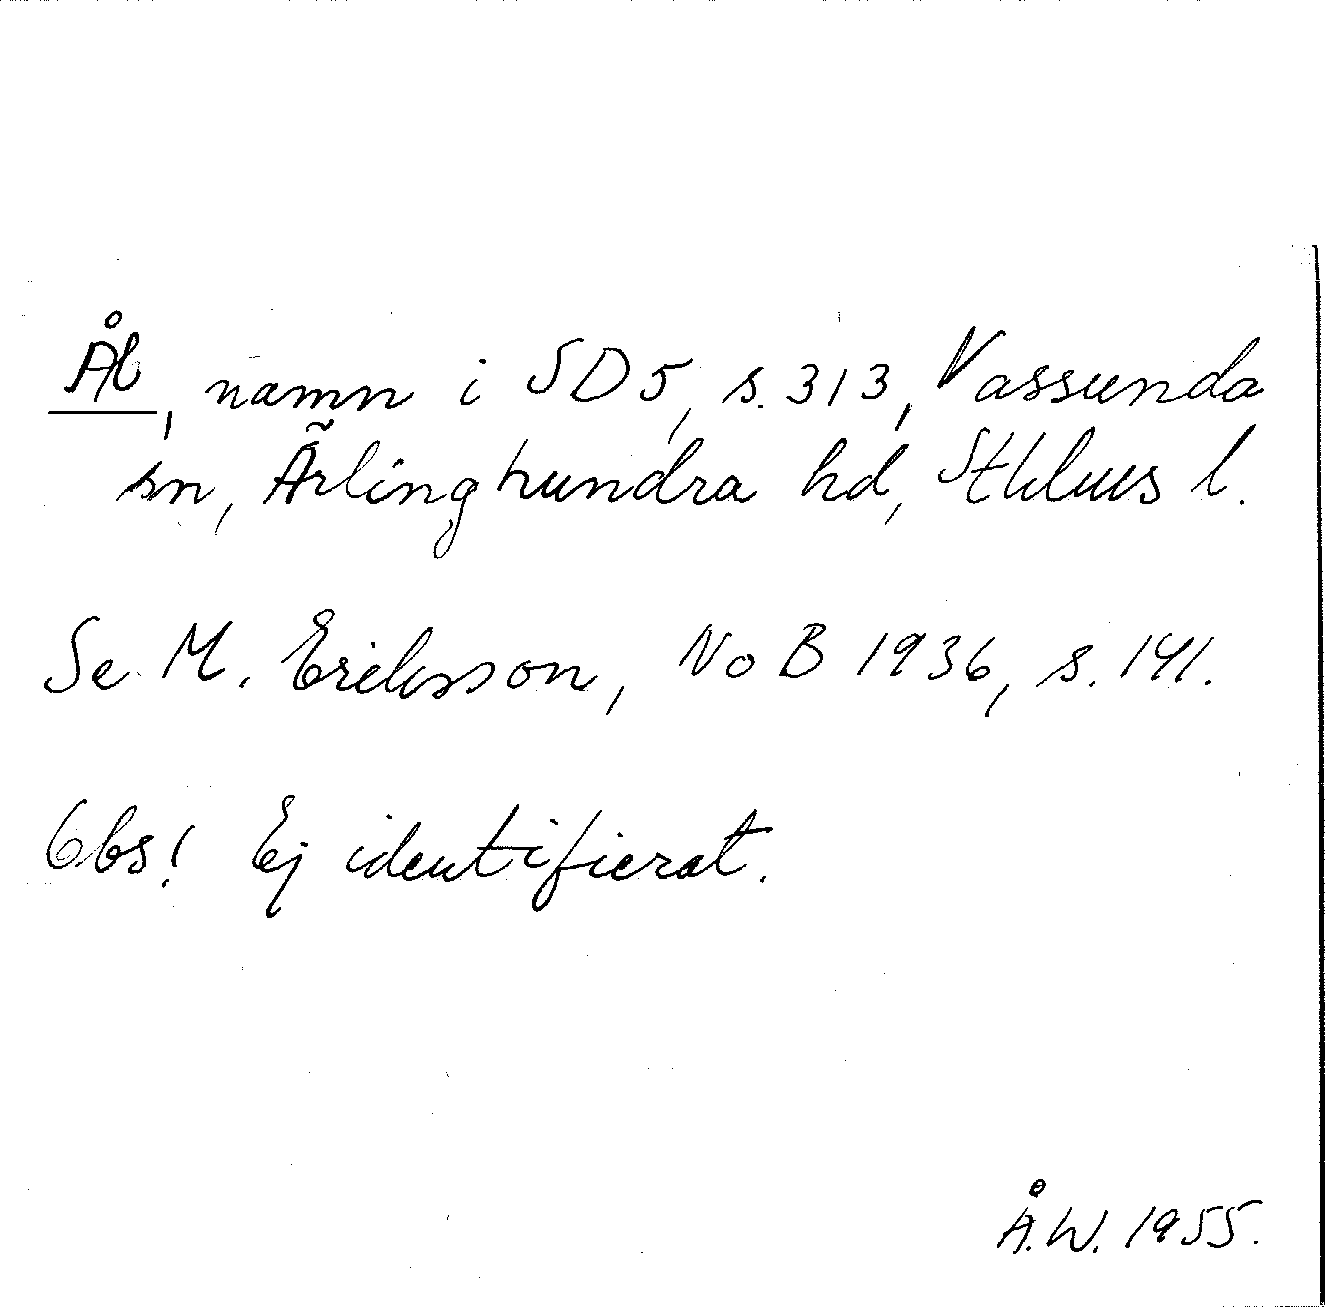 Ål, namn i SD5, s. 313, Vassunda
sn, Ärlinghundra hd, Sthlms l.
Se M. Eriksson, NoB 1936, s. 141.
Obs! Ej identifierat.
Å.W. 1955.